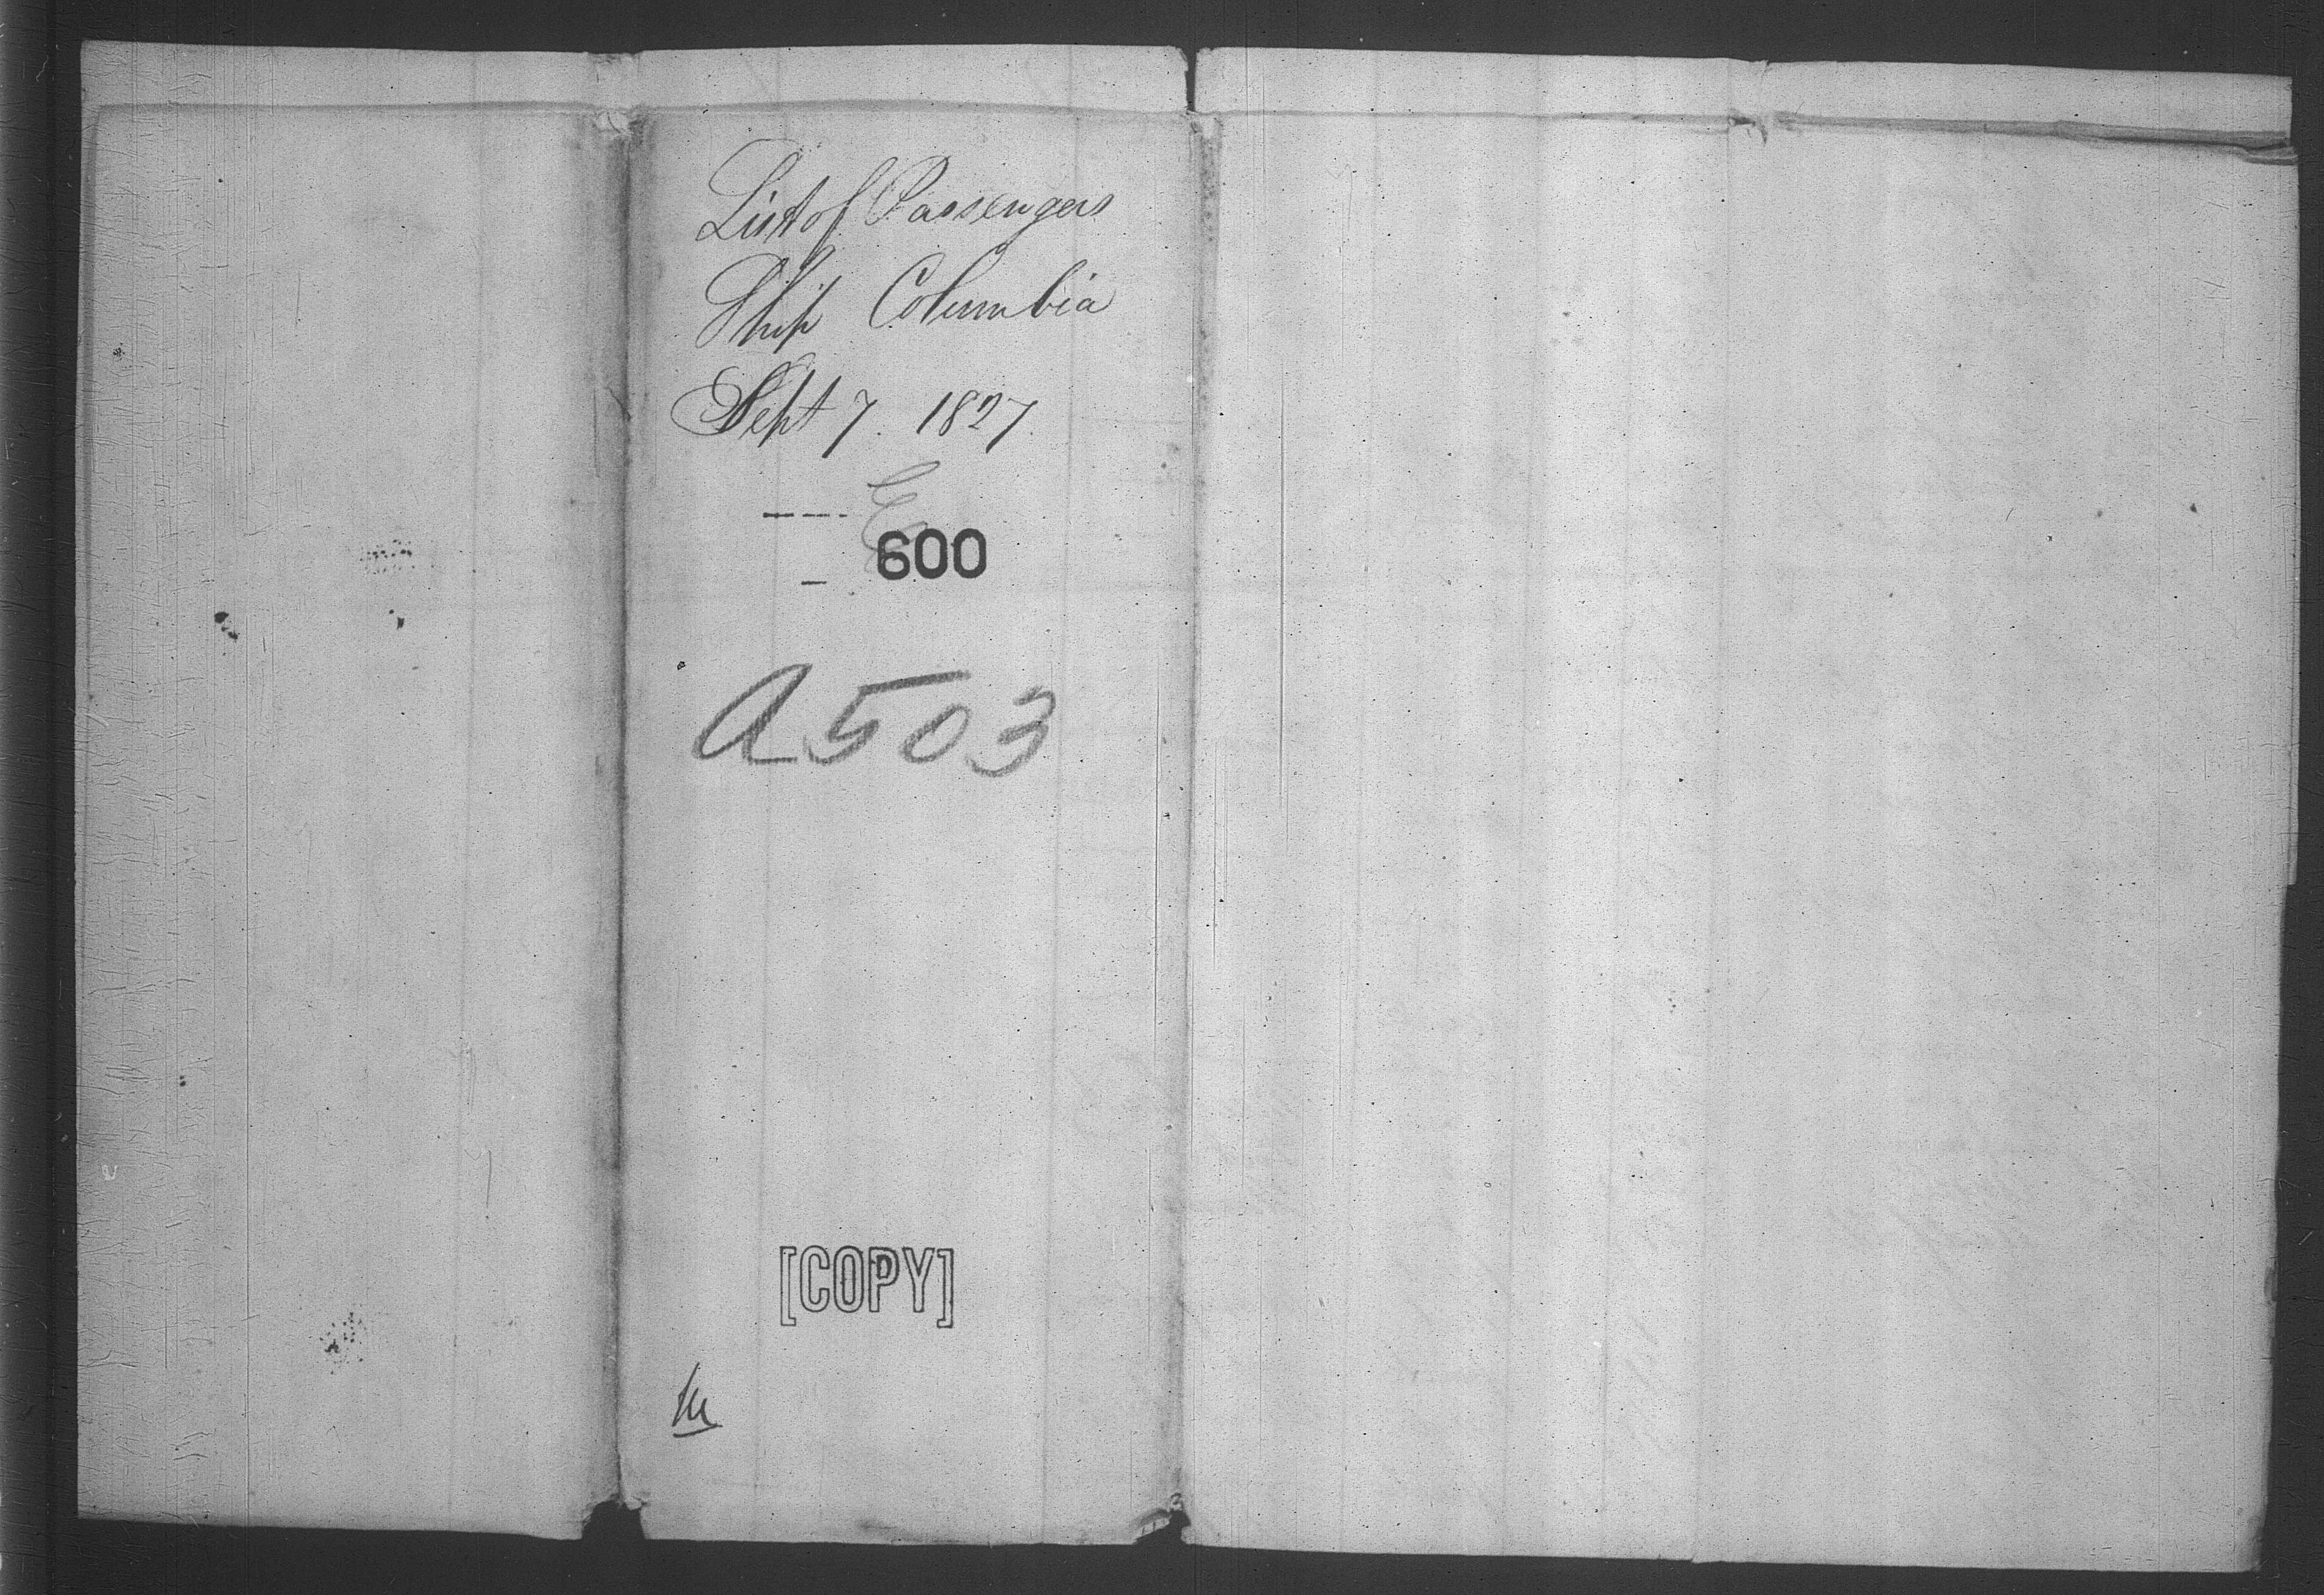 List of Passengers
Ship Columbia
Sept 7. 1827.
600
A503
[COPY]